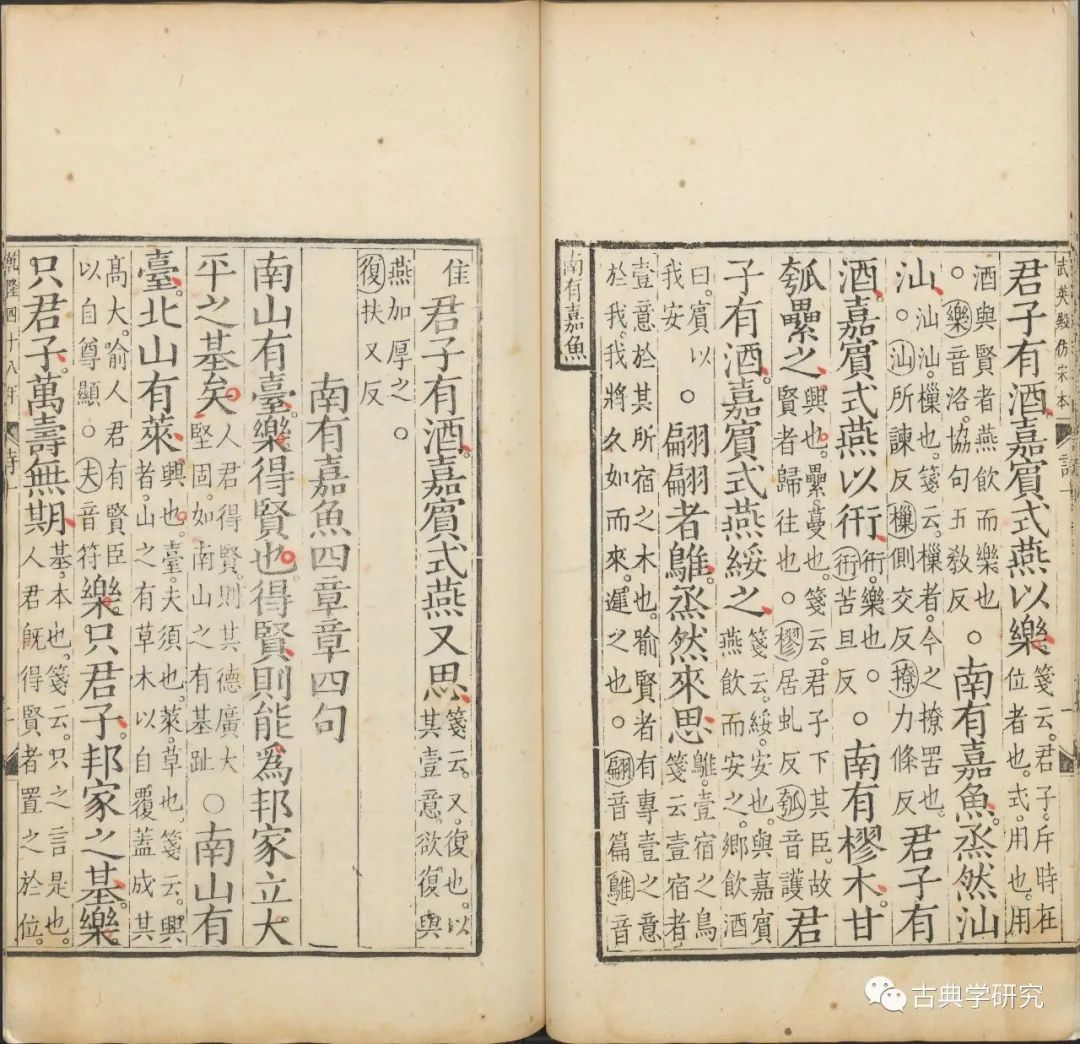 武英殿仿宋本
君子有酒嘉賓式燕以樂箋云君子斥時在位者也式用也用
酒與賢者燕飲而樂也○樂音洛協句五教反○南有嘉魚烝然汕
汕汕汕樔也箋云樔者今之撩罟也○汕所諫反樔側交反撩力條反君子有
酒嘉賓式燕以衎衎樂也○衎苦旦反○南有樛木甘
瓠纍之興也纍蔓也箋云君子下其臣故賢者歸往也○樛居虬反瓠音護君
子有酒嘉賓式燕綏之箋云綏安也與嘉賓燕飲而安之鄉飲酒
曰賓以我安○翩翩者鵻烝然來思鵻壹宿之鳥箋云壹宿者
壹意於其所宿之木也喻賢者有專壹之意於我我將久如而來遲之也○翩音篇鵻音
南有嘉魚
隹君子有酒嘉賓式燕又思箋云又復也以其壹意欲復與
燕加厚之○復扶又反
南有嘉魚四章章四句
南山有臺樂得賢也得賢則能爲邦家立太
平之基矣人君得賢則其德廣大堅固如南山之有基趾○南山有
臺北山有萊興也臺夫須也萊草也箋云興者山之有草木以自覆蓋成其
高大喻人君有賢臣以自尊顯○夫音符樂只君子邦家之基樂
只君子萬壽無期基本也箋云只之言是也人君旣得賢者置之於位
古典学研究